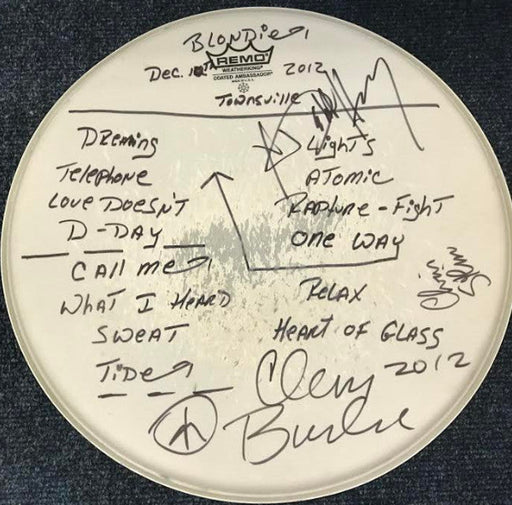 BLONDIE
REMO
WEATHERKING
COATED AMBASSADOR
DEC. 10TH 2012
TOWNSVILLE
DREAMING
TELEPHONE
LOVE DOESN'T
D-DAY
CALL ME
WHAT I HEARD
SWEAT
TIDE
LIGHTS
ATOMIC
RAPTURE - FIGHT
ONE WAY
RELAX
HEART OF GLASS
Clem 2012
Burke